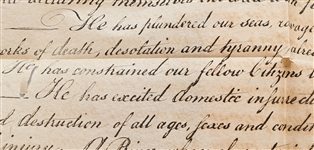 He has plundered our seas, ravage
orks of death, desolation and tyranny
He has constrained our fellow Citizens
He has excited domestic insurrec
d destruction of all ages, sexes and condi